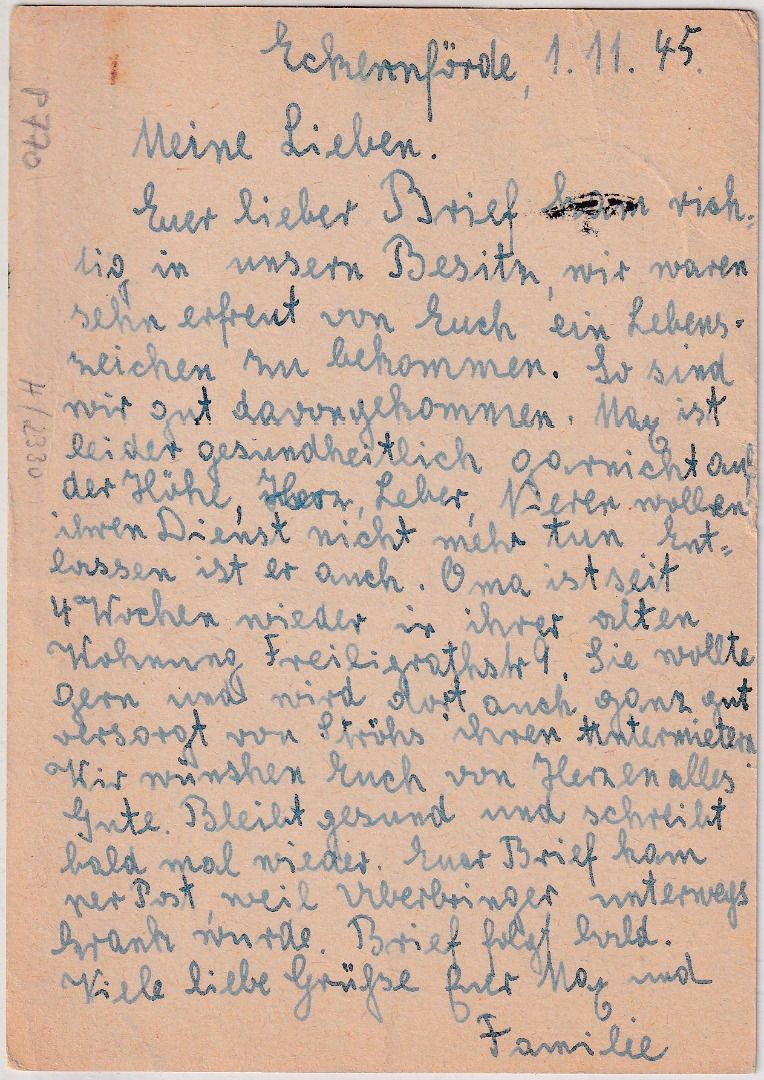 Eckernförde, 1. 11. 45.
Meine Lieben.
Euer lieber Brief kam rich-
tig in unsern Besitz, wir waren
sehr erfreut von Euch ein Lebens-
zeichen zu bekommen. So sind
wir gut davongekommen. Max ist
leider gesundheitlich garnicht auf
der Höhe, Herz, Leber, Nieren wollen
ihren Dienst nicht mehr tun Ent-
lassen ist er auch. Oma ist seit
4 Wochen wieder in ihrer alten
Wohnung Freiligrathstr 9. Sie wollte
gern und wird dort auch ganz gut
versorgt von Ströhs, ihren Untermietern
Wir wünshen Euch von Herzen alles
Gute. Bleibt gesund und schreibt
bald mal wieder. Euer Brief kam
per Post, weil Überbringer unterwegs
krank wurde. Brief folgt bald.
Viele liebe Grüße Euer Max und
Familie
P770
H/2330